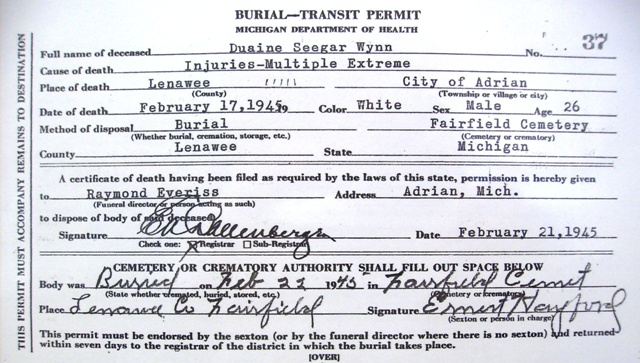 BURIAL—TRANSIT PERMIT
MICHIGAN DEPARTMENT OF HEALTH
Full name of deceased Duaine Seegar Wynn No. 37
Cause of death Injuries-Multiple Extreme
Place of death Lenawee City of Adrian
(County) (Township or village or city)
Date of death February 17,1945, Color White Sex Male Age 26
Method of disposal Burial Fairfield Cemetery
(Whether burial, cremation, storage, etc.) (Cemetery or crematory)
County Lenawee State Michigan
A certificate of death having been filed as required by the laws of this state, permission is hereby given
to Raymond Everiss Address Adrian, Mich.
(Funeral director or person acting as such)
to dispose of body of said deceased
Signature Date February 21,1945
Check one: Registrar Sub-Registrar
CEMETERY OR CREMATORY AUTHORITY SHALL FILL OUT SPACE BELOW
Body was Buried on Feb 22 1945 in Fairfield Cemet
(State whether cremated, buried, stored, etc.) (Cemetery or crematory)
Place Lenawee Co Fairfield Signature Ernest Hayford
(Sexton or person in charge)
This permit must be endorsed by the sexton (or by the funeral director where there is no sexton) and returned
within seven days to the registrar of the district in which the burial takes place.
[OVER]
THIS PERMIT MUST ACCOMPANY REMAINS TO DESTINATION